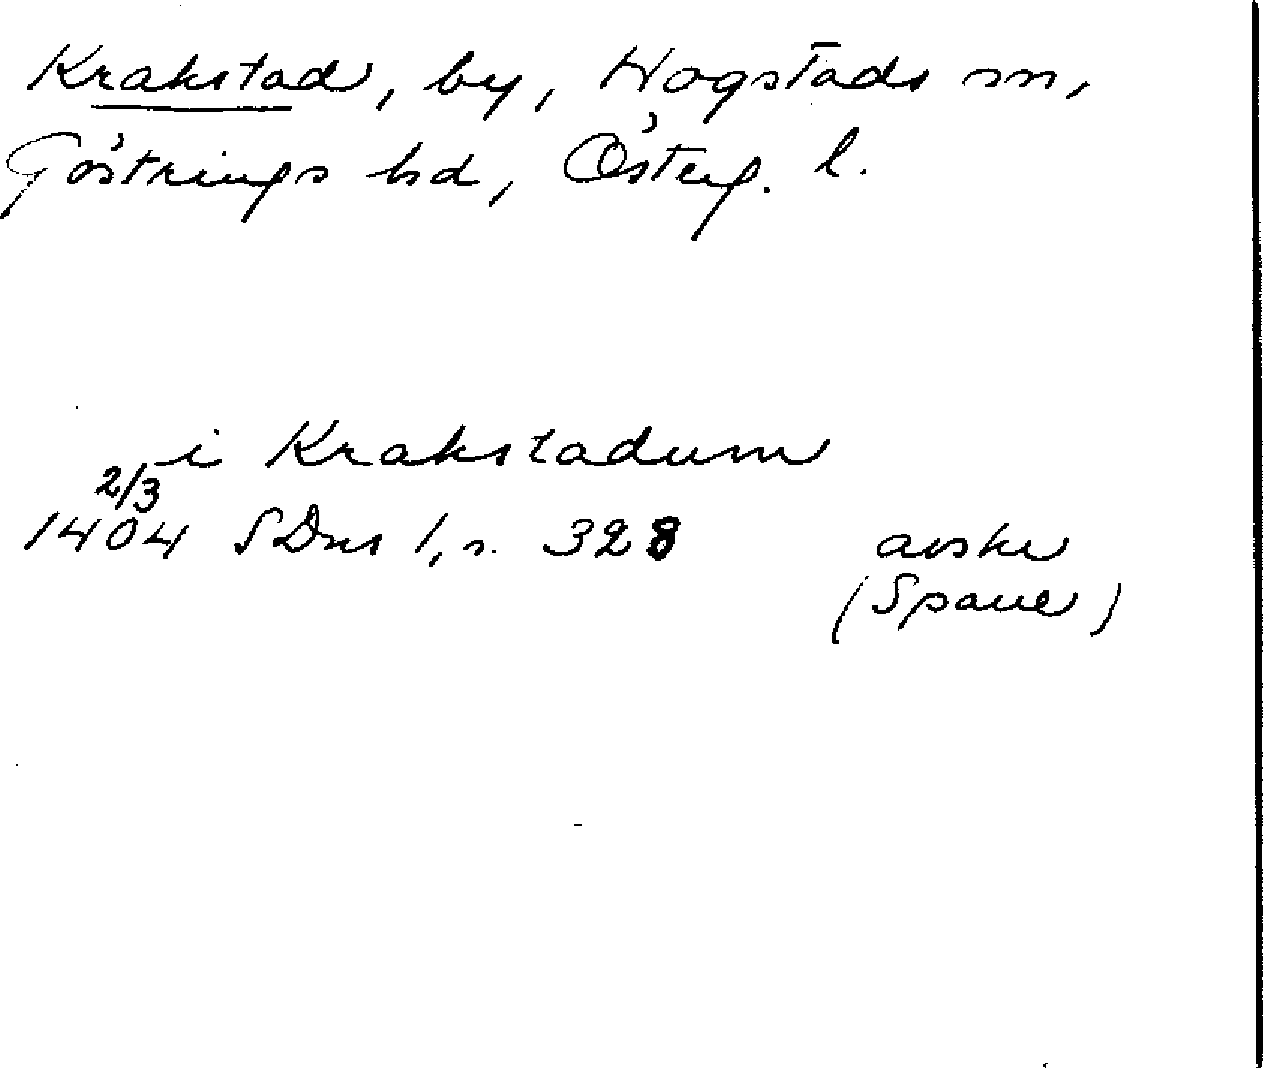 Krakstad, by, Hogstads sn,
Göstrings hd, Österg. l.
i Krakstadum
2/3
1404 SDns 1, s. 328 avskr
(Spane)